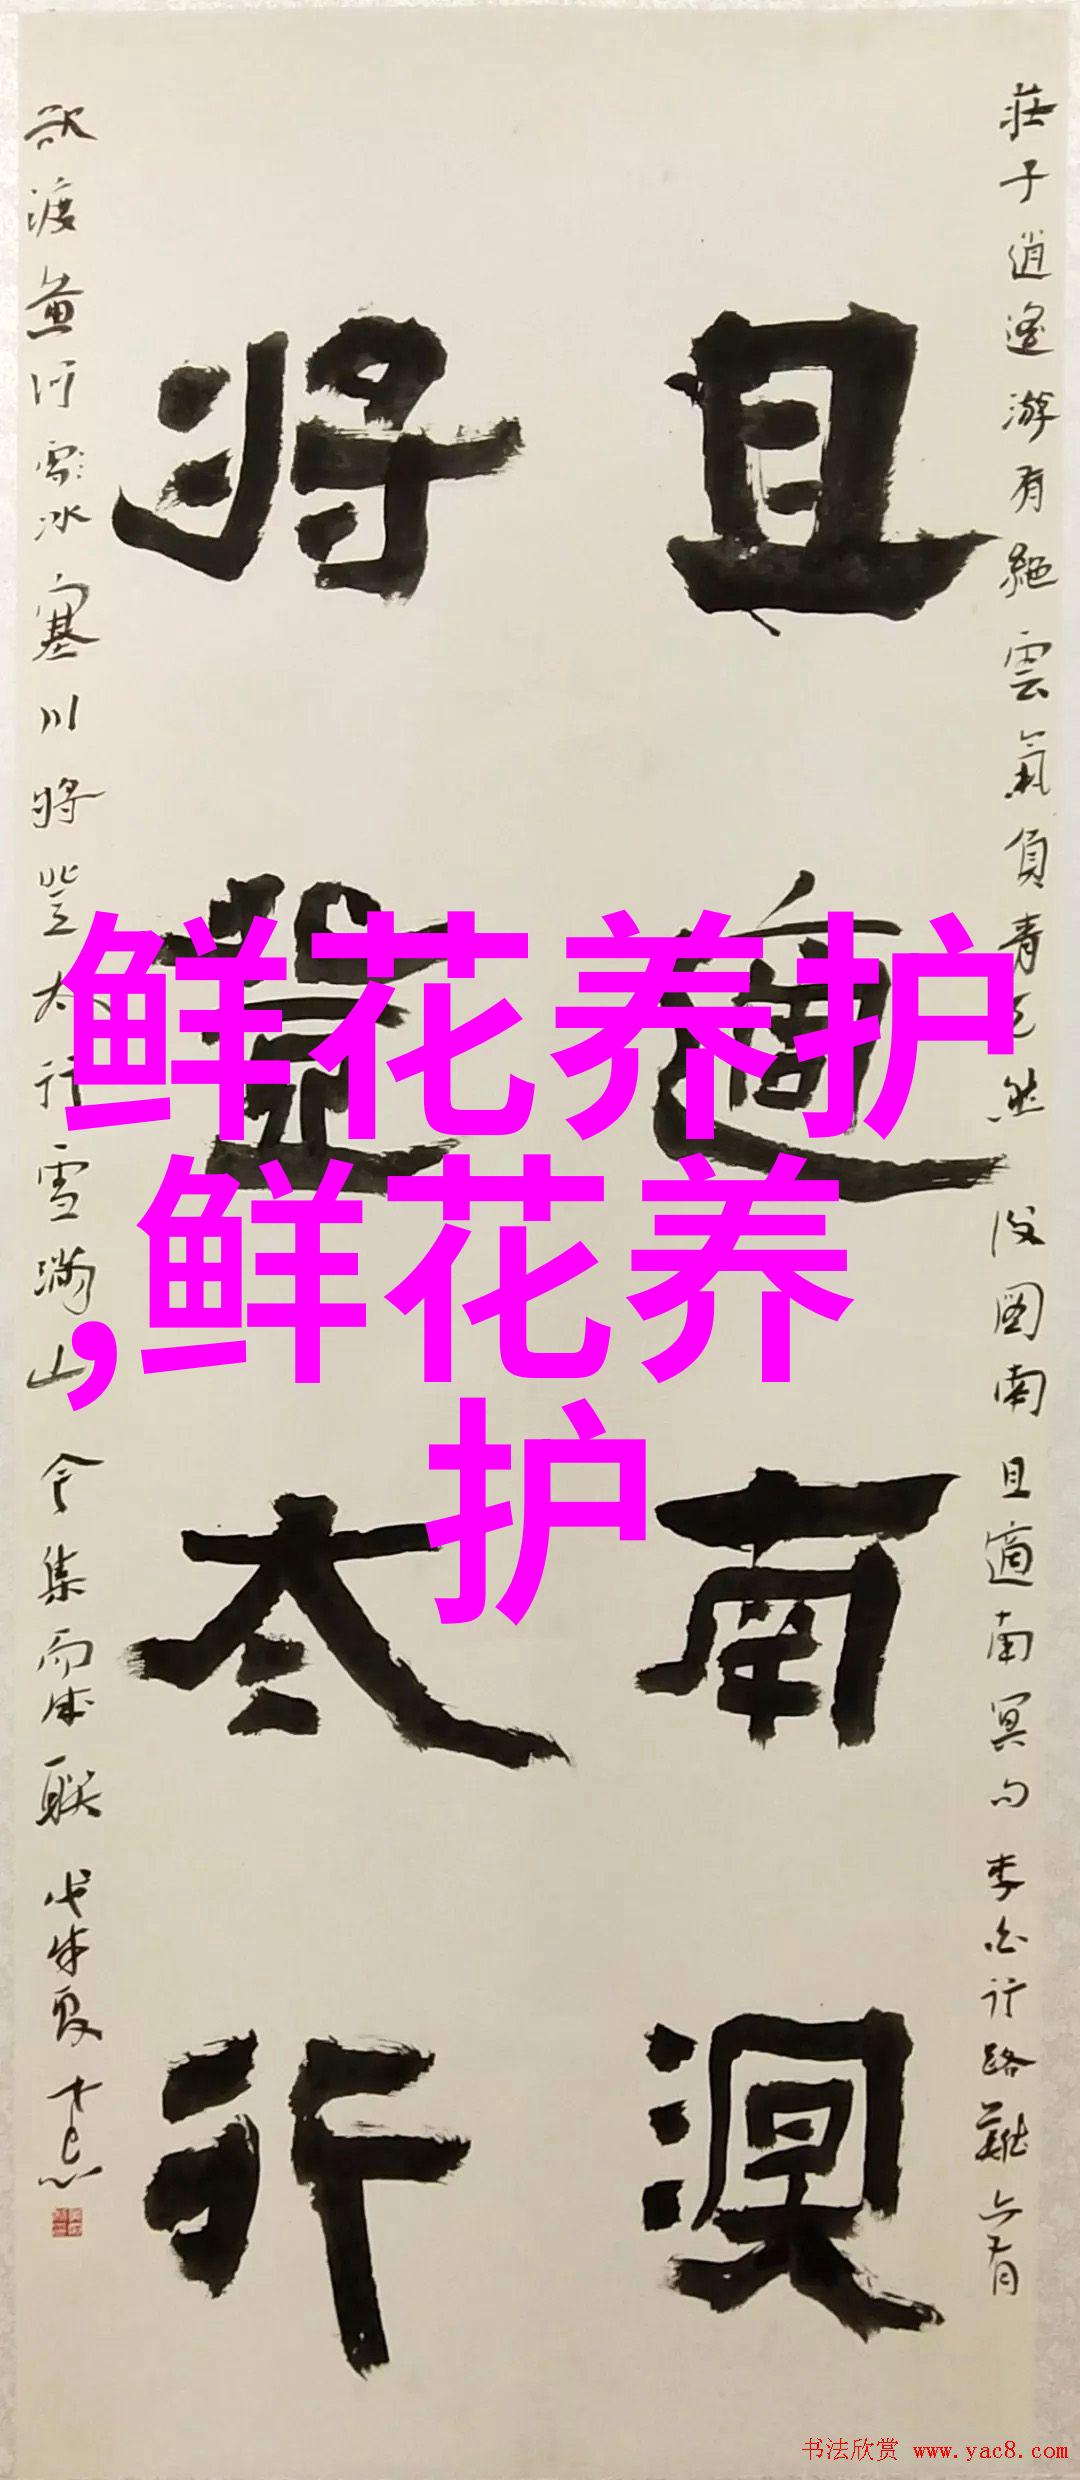 莊子逍遙游有絕雲氣負青天然後圖南且適南冥句李白行路難亦有
且適南溟
將登太行
欲渡黃河冰塞川將登太行雪滿山今集而成聯戊戌夏
鲜花养护
,鲜花养
护
书法欣赏 www.yac8.com